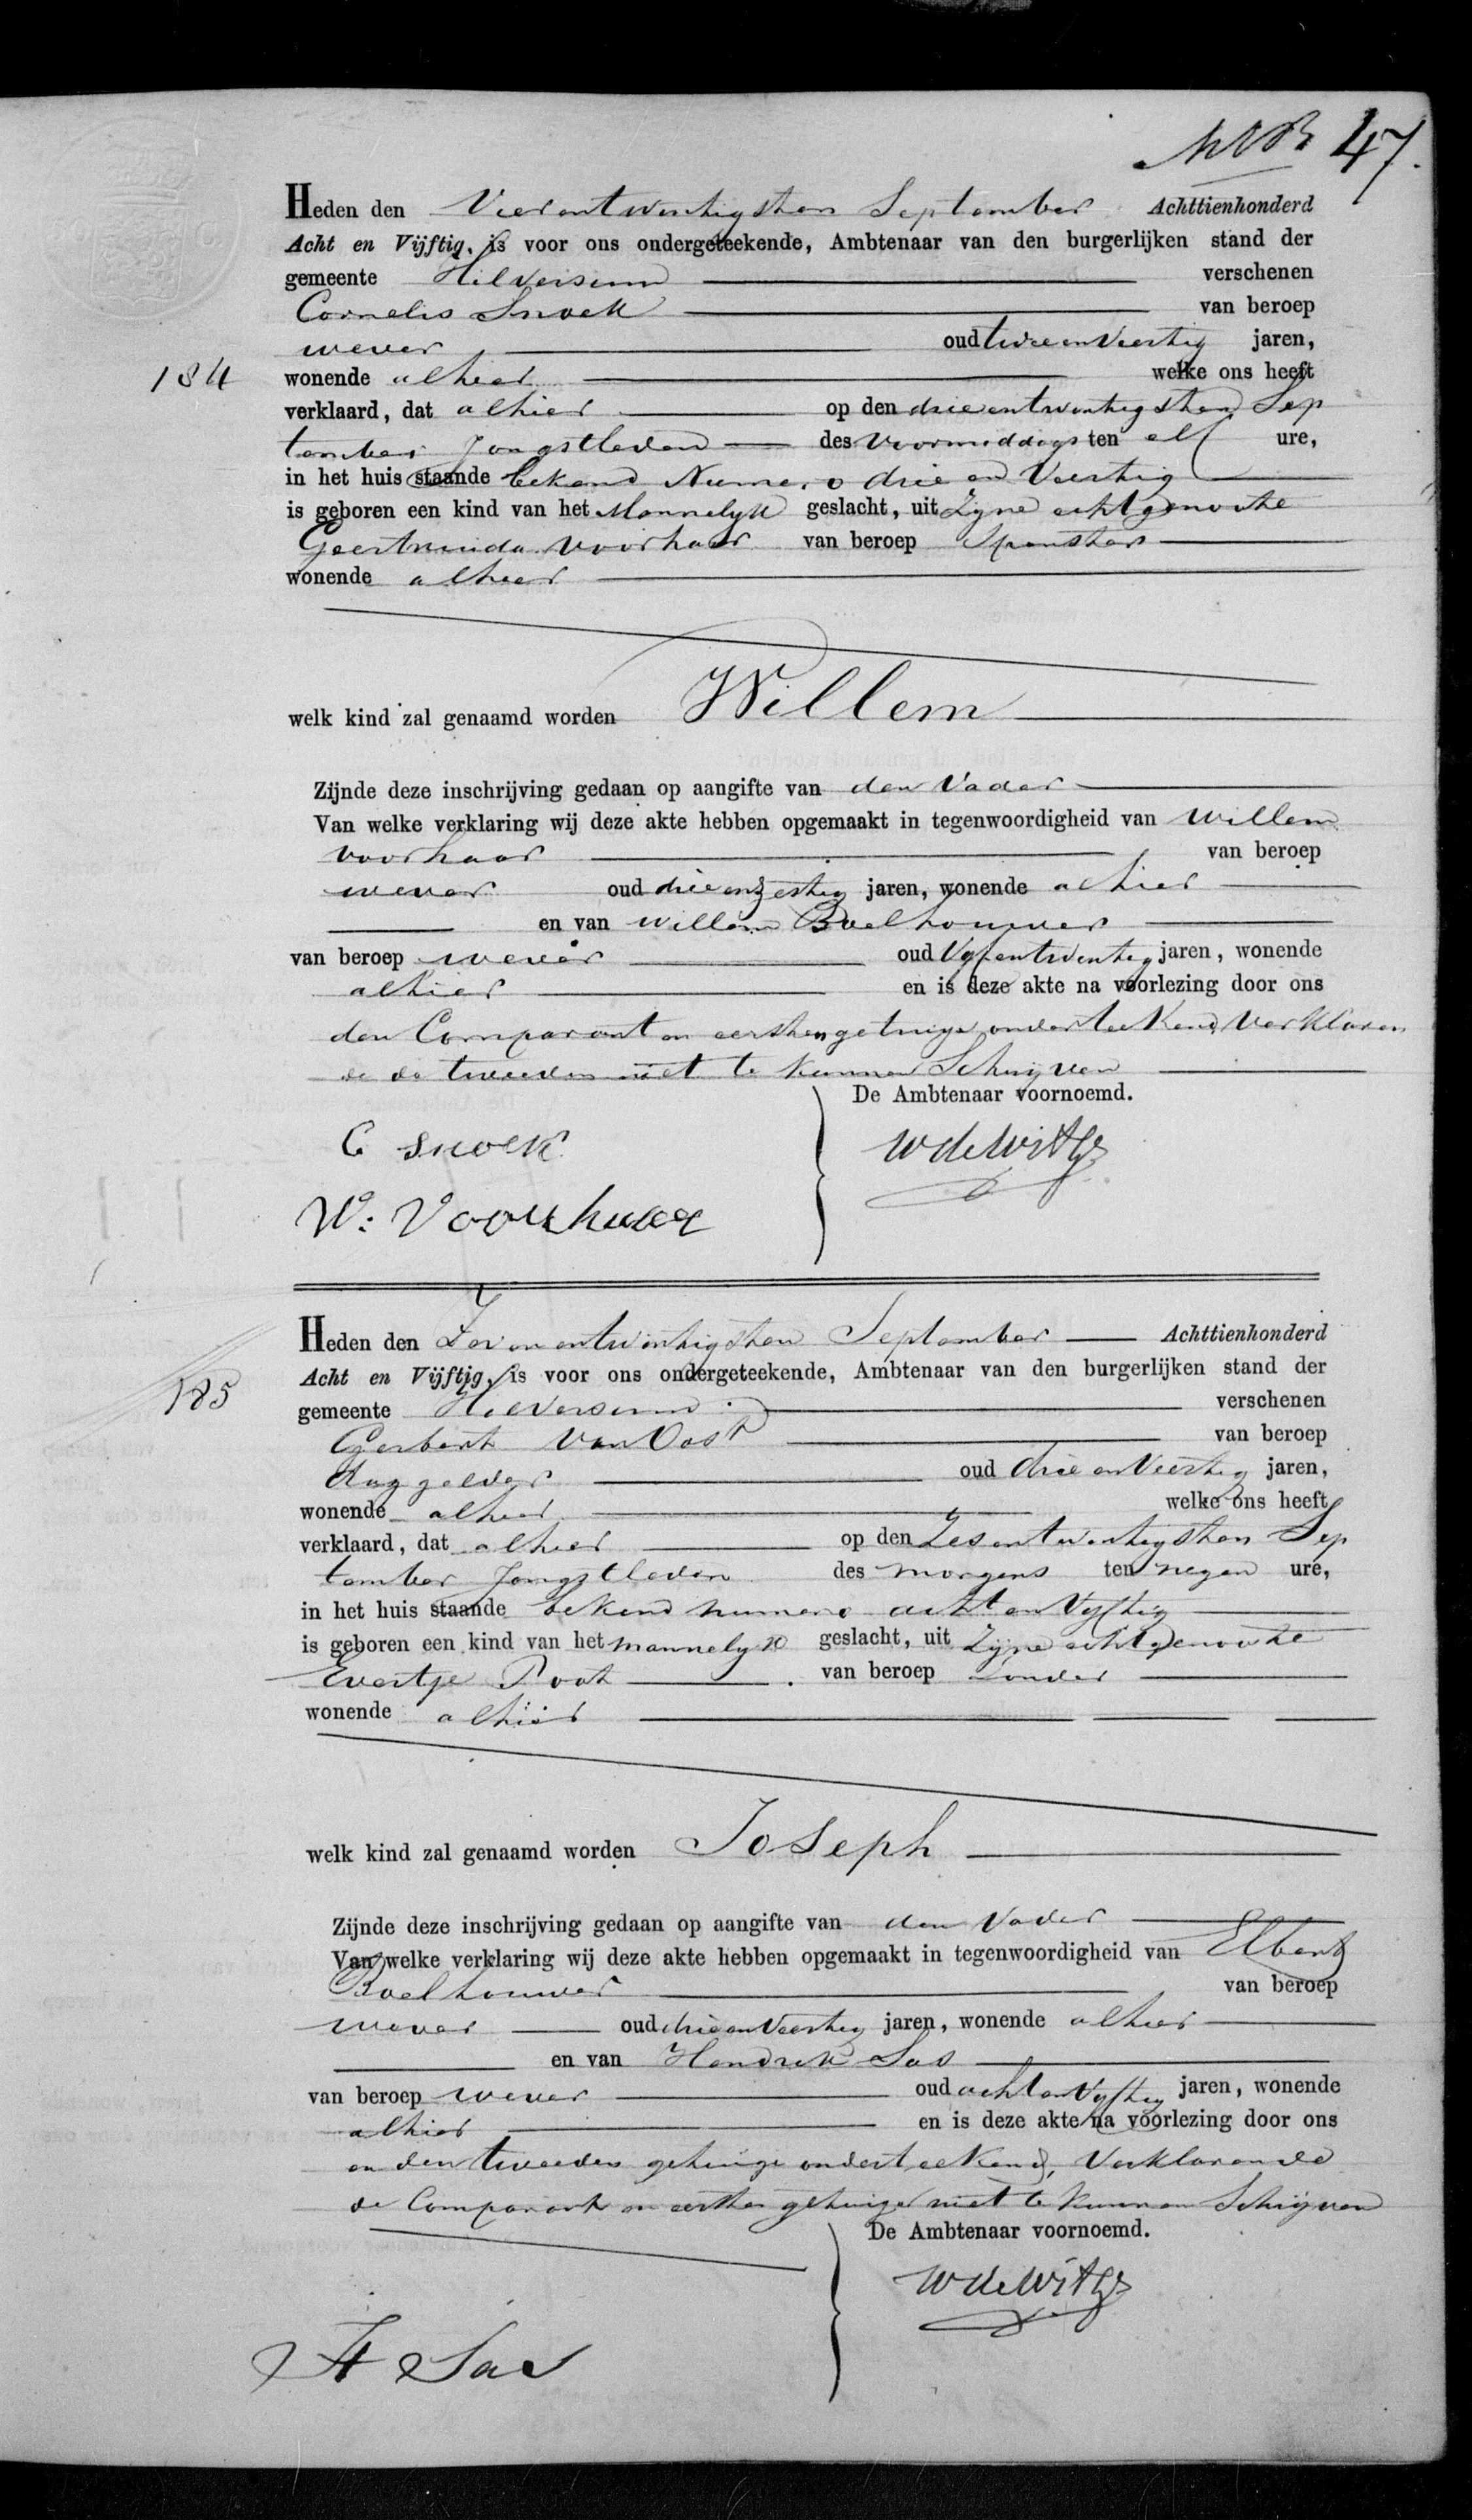 47.
Heden den Vierentwintigsten September Achttienhonderd
Acht en Vijftig, is voor ons ondergeteekende, Ambtenaar van den burgerlijken stand der
gemeente Hilversum verschenen
Cornelis Snoek van beroep
wever oud twee en Veertig jaren,
184 wonende alhier welke ons heeft
verklaard, dat alhier op den drie entwintigsten Sep
tember Jongstleden des Voormiddags ten elf ure,
in het huis staande bekend Numero drie en Veertig
is geboren een kind van het Mannelyk geslacht, uit Zyne echtgenoote
Geertruida Voorhaar van beroep Spinster
wonende alhier
welk kind zal genaamd worden Willem
Zijnde deze inschrijving gedaan op aangifte van den Vader
Van welke verklaring wij deze akte hebben opgemaakt in tegenwoordigheid van Willem
Voorhaar van beroep
wever oud drie en zestig jaren, wonende alhier
en van Willem Boelhouwer
van beroep wever oud Vyfentwintig jaren, wonende
alhier en is deze akte na voorlezing door ons
den Comparant en eersten getuige onderteekend, Verklaren
de de tweeden niet te kunnen Schryven
De Ambtenaar voornoemd.
C snoek WdeWit Gz
W: Voorhaar
Heden den Zevenentwintigsten September Achttienhonderd
Acht en Vijftig, is voor ons ondergeteekende, Ambtenaar van den burgerlijken stand der
185 gemeente Hilversum verschenen
Gerbert Van Oost van beroep
oud drie en Veertig jaren,
wonende alhier welke ons heeft
verklaard, dat alhier op den Zesentwintigsten Sep
tember Jongstleden des morgens ten negen ure,
in het huis staande bekend numero acht en Vyftig
is geboren een kind van het mannelyk geslacht, uit Zyne echtgenoote
Evertje Poot van beroep Zonder
wonende alhier
welk kind zal genaamd worden Joseph
Zijnde deze inschrijving gedaan op aangifte van den Vader
Van welke verklaring wij deze akte hebben opgemaakt in tegenwoordigheid van Elbert
Boelhouwer van beroep
wever oud drie en Veertig jaren, wonende alhier
en van Hendrik Sas
van beroep wever oud acht en Vyftig jaren, wonende
alhier en is deze akte na voorlezing door ons
en den tweeden getuige onderteekend, Verklarende
de Comparant en eersten getuige niet te kunnen Schryven
De Ambtenaar voornoemd.
WdeWit Gz
H Sas